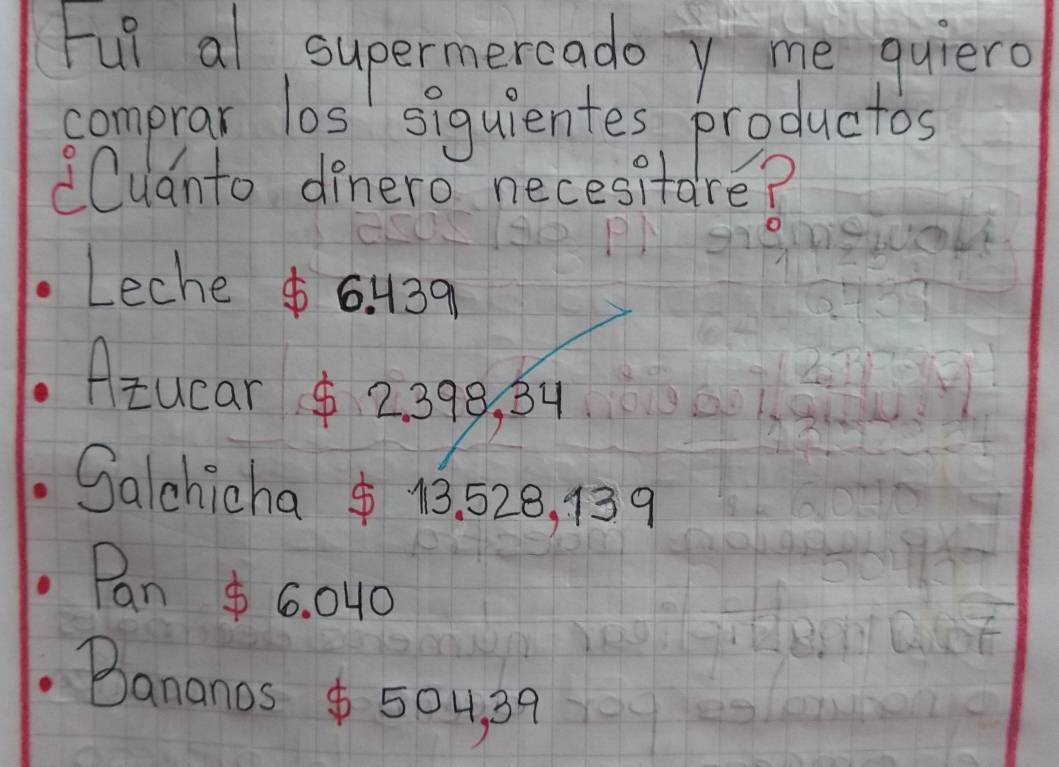 Fui al supermercado y me quiero
comprar los siguientes productos
¿Cuánto dinero necesitaré?
• Leche $ 6.439
• Azucar $ 2.398,34
• Salchicha $ 13.528,139
• Pan $ 6.040
• Bananos $ 504,39